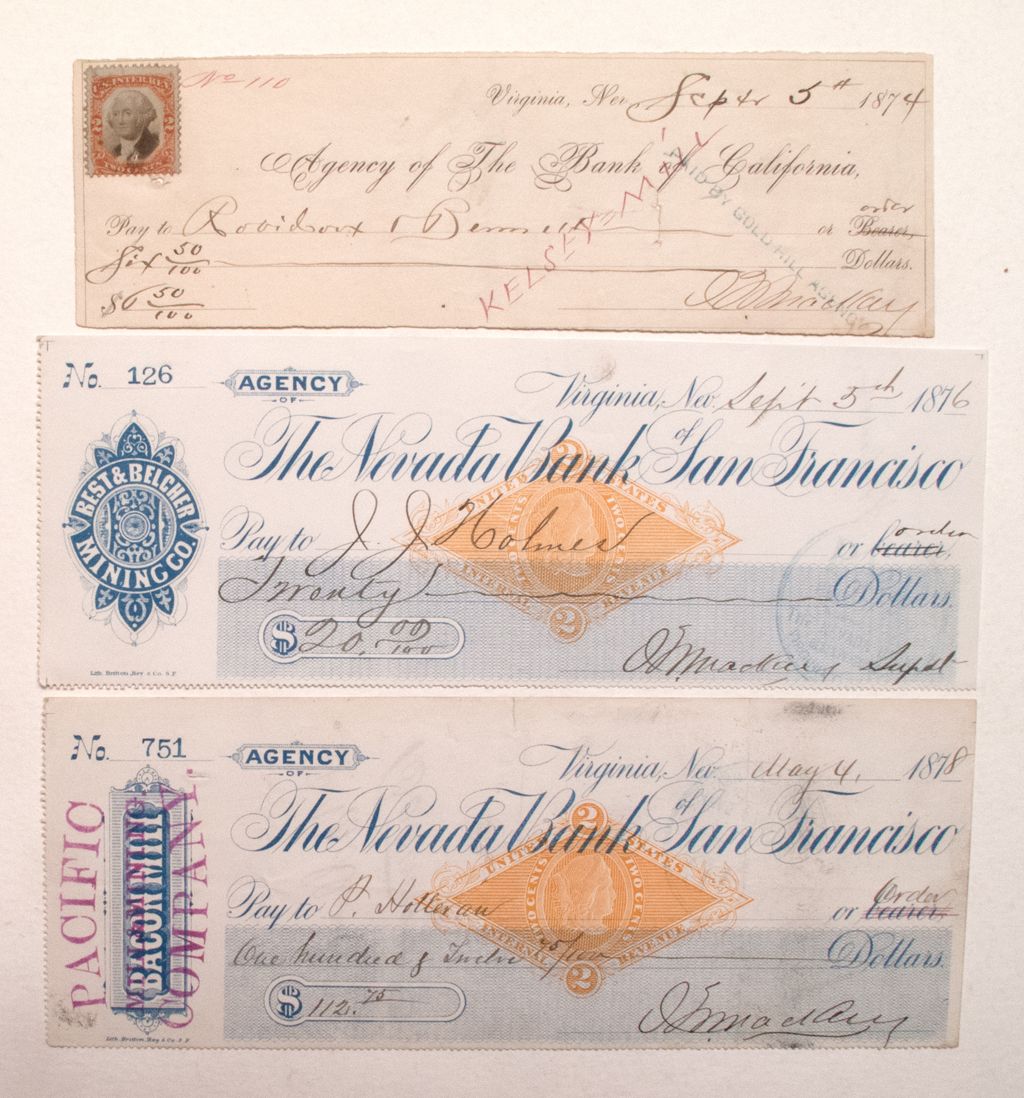 U.S. INTER. REV.
No 110
Virginia, Nev. Septr 5th 1874
Agency of The Bank of California,
order
Pay to Robidoux & Bennett or Bearer,
Six 50/100 Dollars.
$6 50/100
KELSEY
PAID BY GOLD HILL AGENCY
No. 126
AGENCY
OF
Virginia, Nev. Sept 5th 1876
The Nevada Bank of San Francisco
BEST & BELCHER
MINING CO.
UNITED STATES
TWO CENTS
INTERNAL REVENUE
2
2
order
Pay to J. J. Holmes or bearer,
Twenty Dollars.
$ 20.00/100
Supdt
Lith. Britton, Rey & Co. S.F.
No. 751
AGENCY
OF
Virginia, Nev. May 4, 1878
The Nevada Bank of San Francisco
PACIFIC
BACON MILL
COMPANY.
UNITED STATES
TWO CENTS
TWO CENTS
INTERNAL REVENUE
2
2
Order
Pay to P. Holleran or bearer,
One hundred & Twelve 75/100 Dollars.
$ 112.75
Lith. Britton, Rey & Co. S.F.